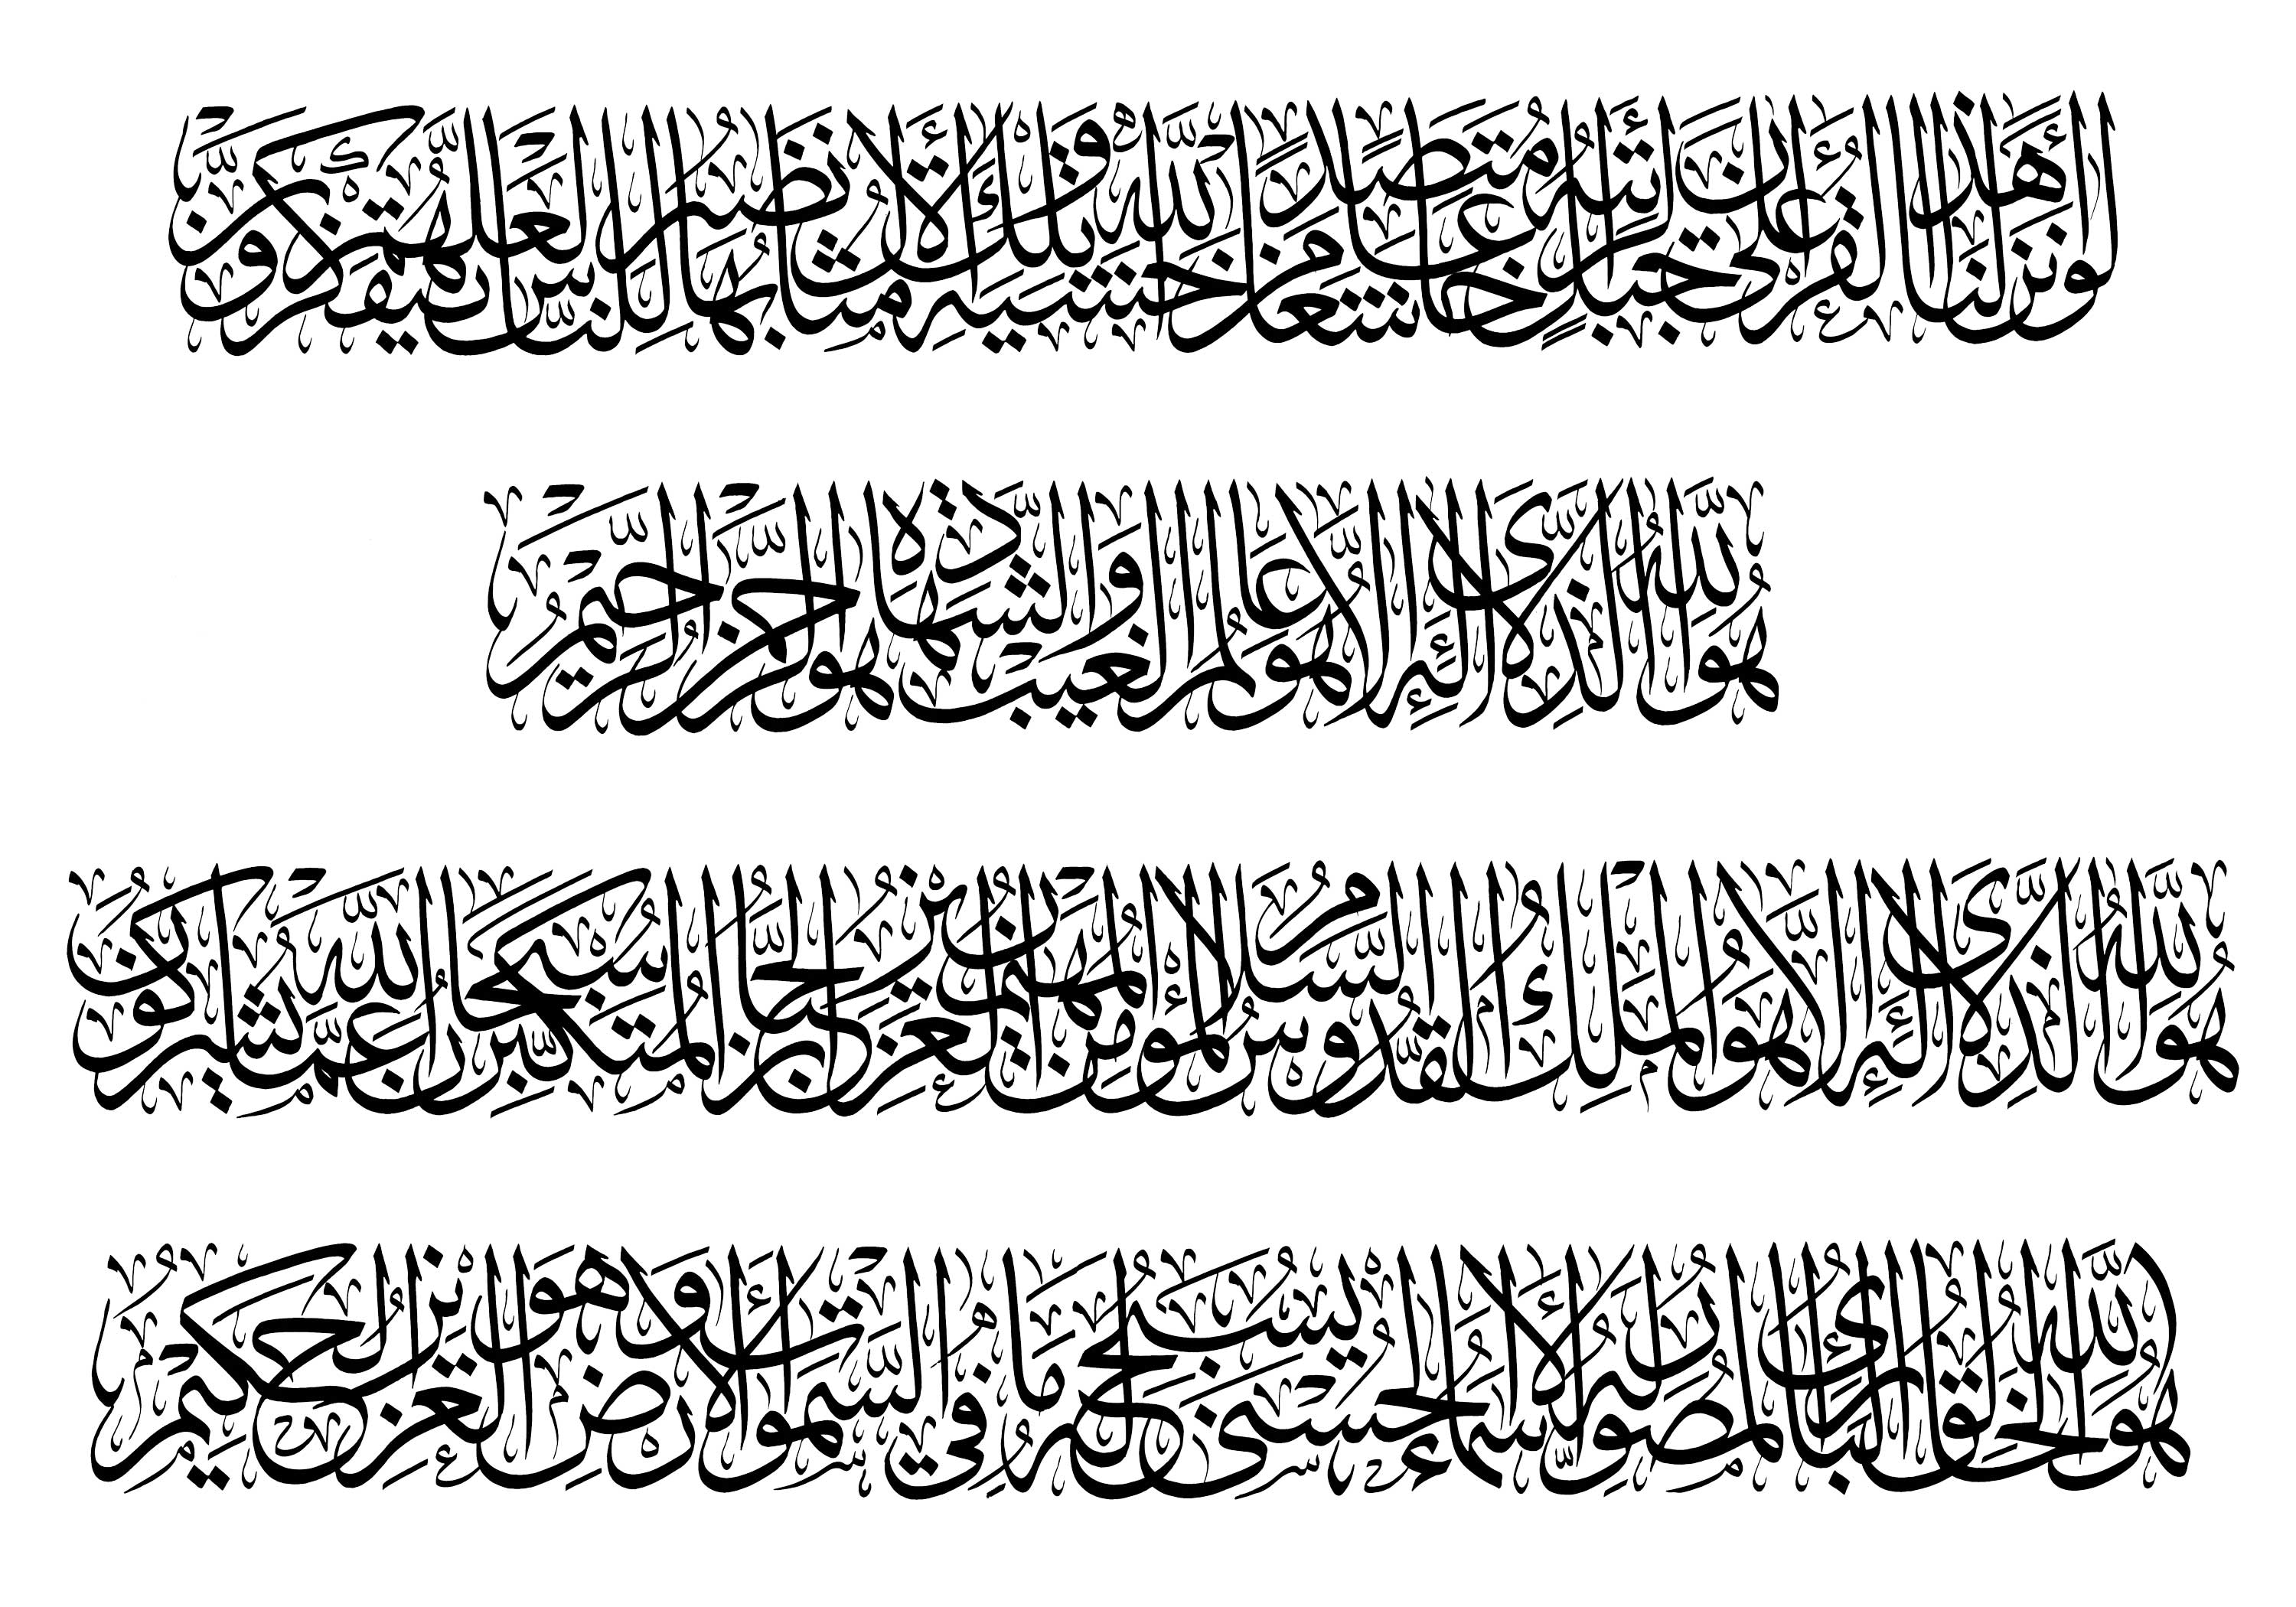 لو أنزلنا هذا القرآن على جبل لرأيته خاشعا متصدعا من خشية الله وتلك الأمثال نضربها للناس لعلهم يتفكرون
هو الله الذي لا إله إلا هو عالم الغيب والشهادة هو الرحمن الرحيم
هو الله الذي لا إله إلا هو الملك القدوس السلام المؤمن المهيمن العزيز الجبار المتكبر سبحان الله عما يشركون
هو الله الخالق البارئ المصور له الأسماء الحسنى يسبح له ما في السموات والأرض وهو العزيز الحكيم